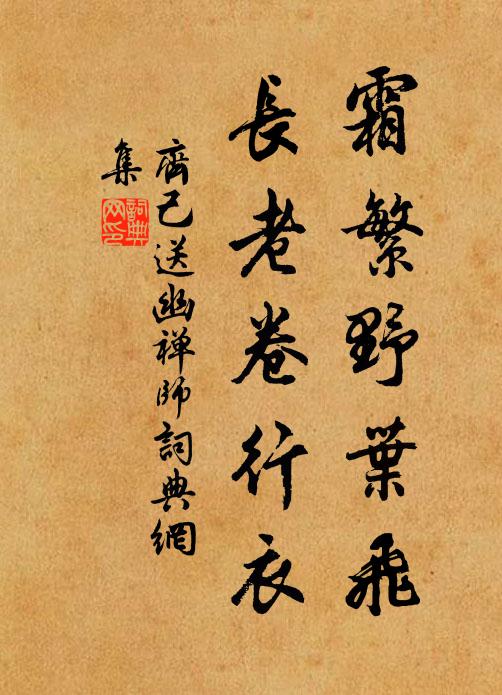 霜繁野葉飛
長老卷行衣
齊己送幽禪師詞典網
集
詞典
网印